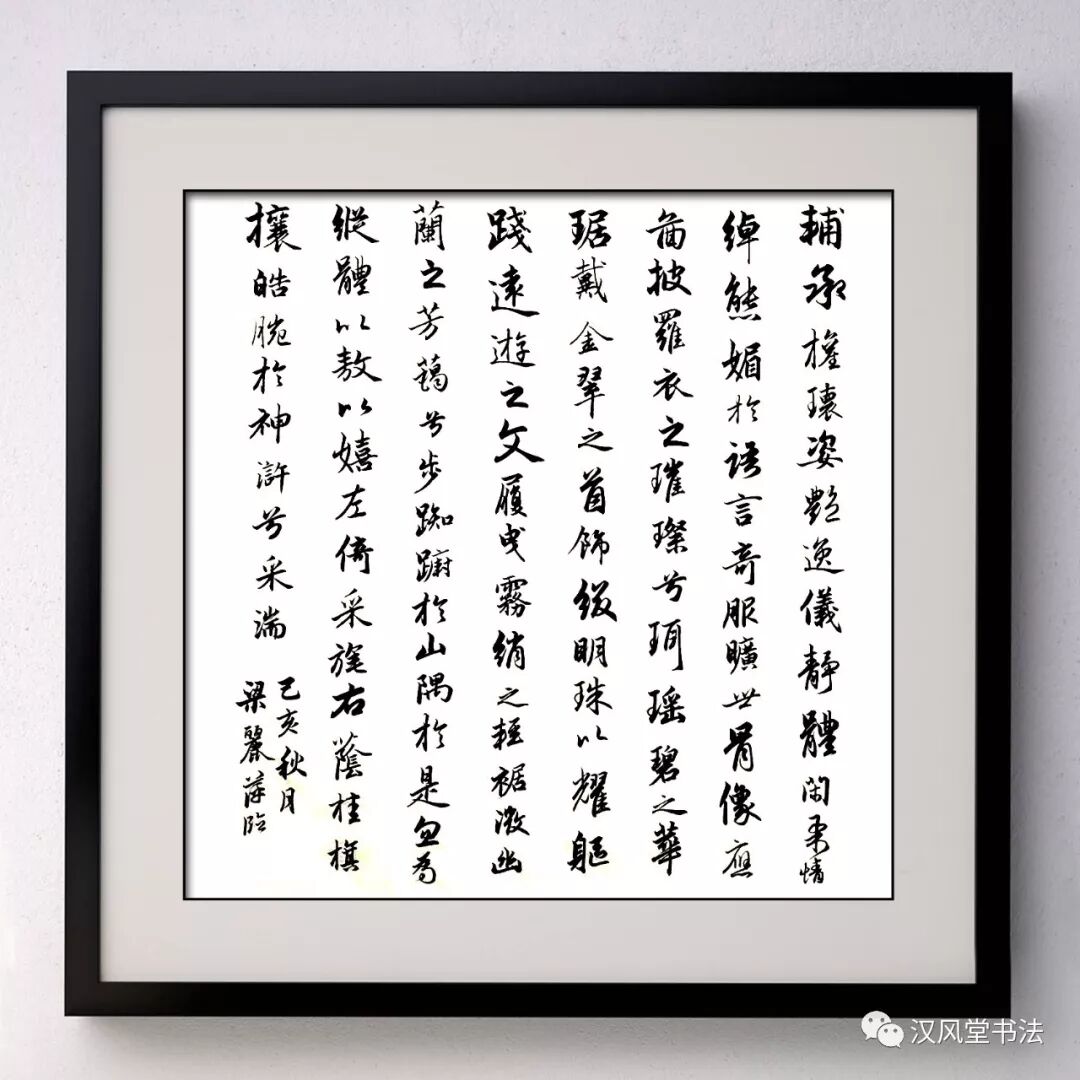 輔承權瓌姿艷逸儀靜體閑柔情
綽態媚於語言奇服曠世骨像應
啚披羅衣之璀璨兮珥瑤碧之華
琚戴金翠之首飾綴明珠以耀軀
踐遠遊之文履曳霧綃之輕裾微幽
蘭之芳藹兮步踟躕於山隅於是忽焉
縱體以敖以嬉左倚采旄右蔭桂旗
攘皓腕於神滸兮采湍
己亥秋月
梁麗萍臨
汉风堂书法